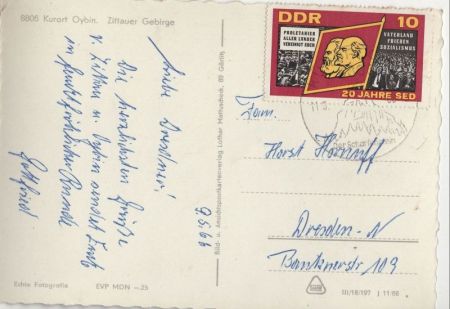 8806 Kurort Oybin. Zittauer Gebirge
9.5.66
Liebe Dresdner!
Die herzlichsten Grüße
v. Zittau u. Oybin sendet Euch
Gottfried
Echte Fotografie
EVP MDN —25
Bild- u. Ansichtspostkartenverlag Lothar Mattuscheck, 89 Görlitz
DDR 10
PROLETARIER
ALLER LÄNDER
VEREINIGT EUCH
VATERLAND
FRIEDEN
SOZIALISMUS
20 JAHRE SED
Fam.
Horst Hornuff
Dresden-N
Bautznerstr 109
III/18/197 J 11/66